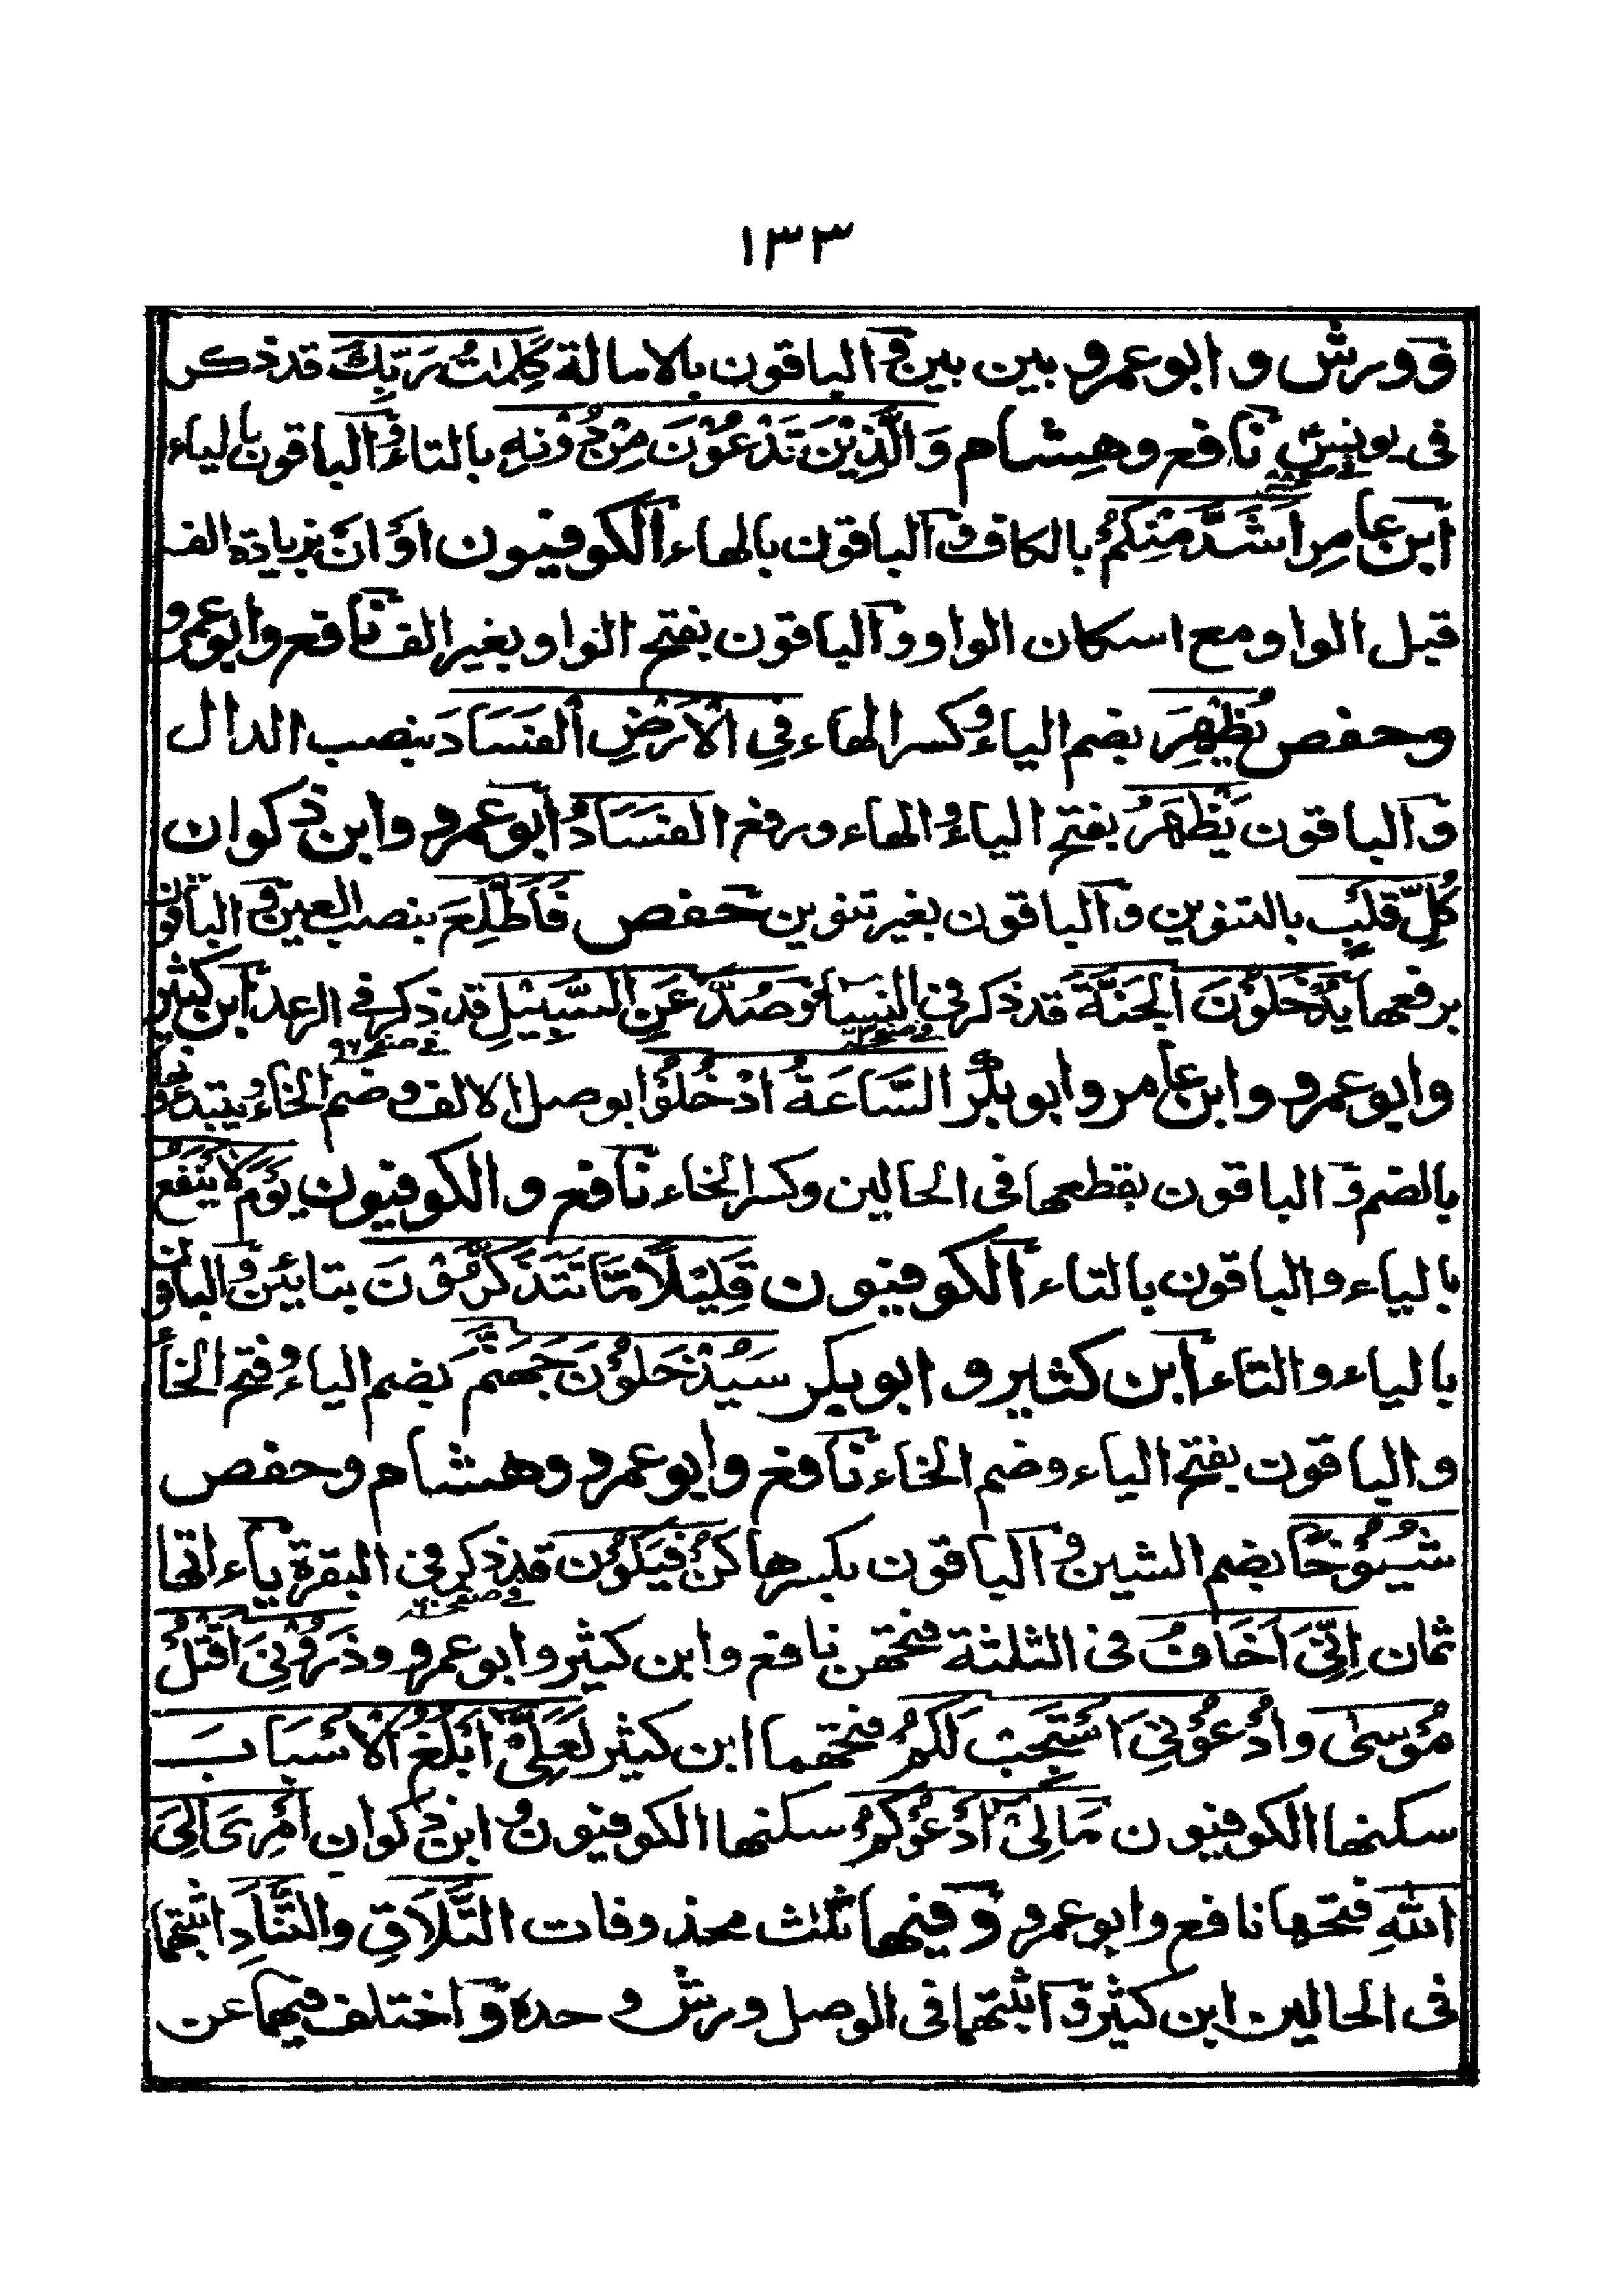 ١٣٣
وورش وابو عمرو بين بين والباقون بالامالة كَلِمَاتُ رَبِّكَ قد ذكر
فى يونس نافع وهشام وَالَّذِيْنَ تَدْعُوْنَ مِنْ دُوْنِهِ بالتاء والباقون بالياء
ابن عامر اَشَدَّ مِنْكُمْ بالكاف والباقون بالهاء الكوفيون اَوْ اَنْ بزيادة الف
قبل الواو مع اسكان الواو والباقون بفتح الواو بغير الف نافع وابو عمرو
وحفص يُظْهِرَ بضم الياء وكسر الهاء فِى الْاَرْضِ الْفَسَادَ بنصب الدال
والباقون يَظْهَرَ بفتح الياء والهاء ورفع الفَسَادُ ابو عمرو وابن ذكوان
كُلِّ قلبٍ بالتنوين والباقون بغير تنوين حفص فَاَطَّلِعَ بنصب العين والباقون
برفعها يَدْخُلُوْنَ الْجَنَّةَ قد ذكر فى النساء وَصُدَّ عَنِ السَّبِيْلِ قد ذكر فى الرعد ابن كثير
وابو عمرو وابن عامر وابو بكر السَّاعَةُ ادْخُلُوْا بوصل الالف وضم الخاء ويبتدءونها
بالضم والباقون بقطعها فى الحالين وكسر الخاء نافع والكوفيون يَوْمَ لَا يَنْفَعُ
بالياء والباقون بالتاء الكوفيون قَلِيْلًا مَّا تَتَذَكَّرُوْنَ بتائين والباقون
بالياء والتاء ابن كثير و ابو بكر سَيُدْخَلُوْنَ جَهَنَّمَ بضم الياء وفتح الخاء
والباقون بفتح الياء وضم الخاء نافع وابو عمرو وهشام وحفص
شُيُوْخًا بضم الشين والباقون بكسرها كُنْ فَيَكُوْنُ قد ذكر فى البقرة ياء اتها
ثمان اِنِّىَ اَخَافُ فى الثلثة فتحهن نافع وابن كثير وابو عمرو وذَرُوْنِىَ اَقْتُلْ
مُوْسٰى وادْعُوْنِىَ اَسْتَجِبْ لَكُمْ فتحهما ابن كثير لَعَلِّىْ اَبْلُغُ الْاَسْبَابَ
سكنها الكوفيون مَا لِىْ اَدْعُوْكُمْ سكنها الكوفيون و ابن ذكوان اَمْرِىَ اِلَى
اللهِ فتحها نافع وابو عمرو وفيها ثلث محذوفات التَّلَاقِ والتَّنَادِ اثبتهما
فى الحالين ابن كثير و اثبتهما فى الوصل ورش وحده واختلف فيهما عن